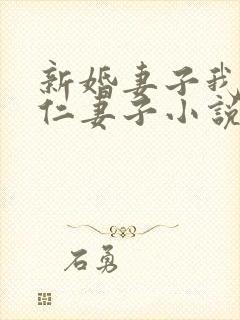 新婚妻子我
仁妻子小说
石勇